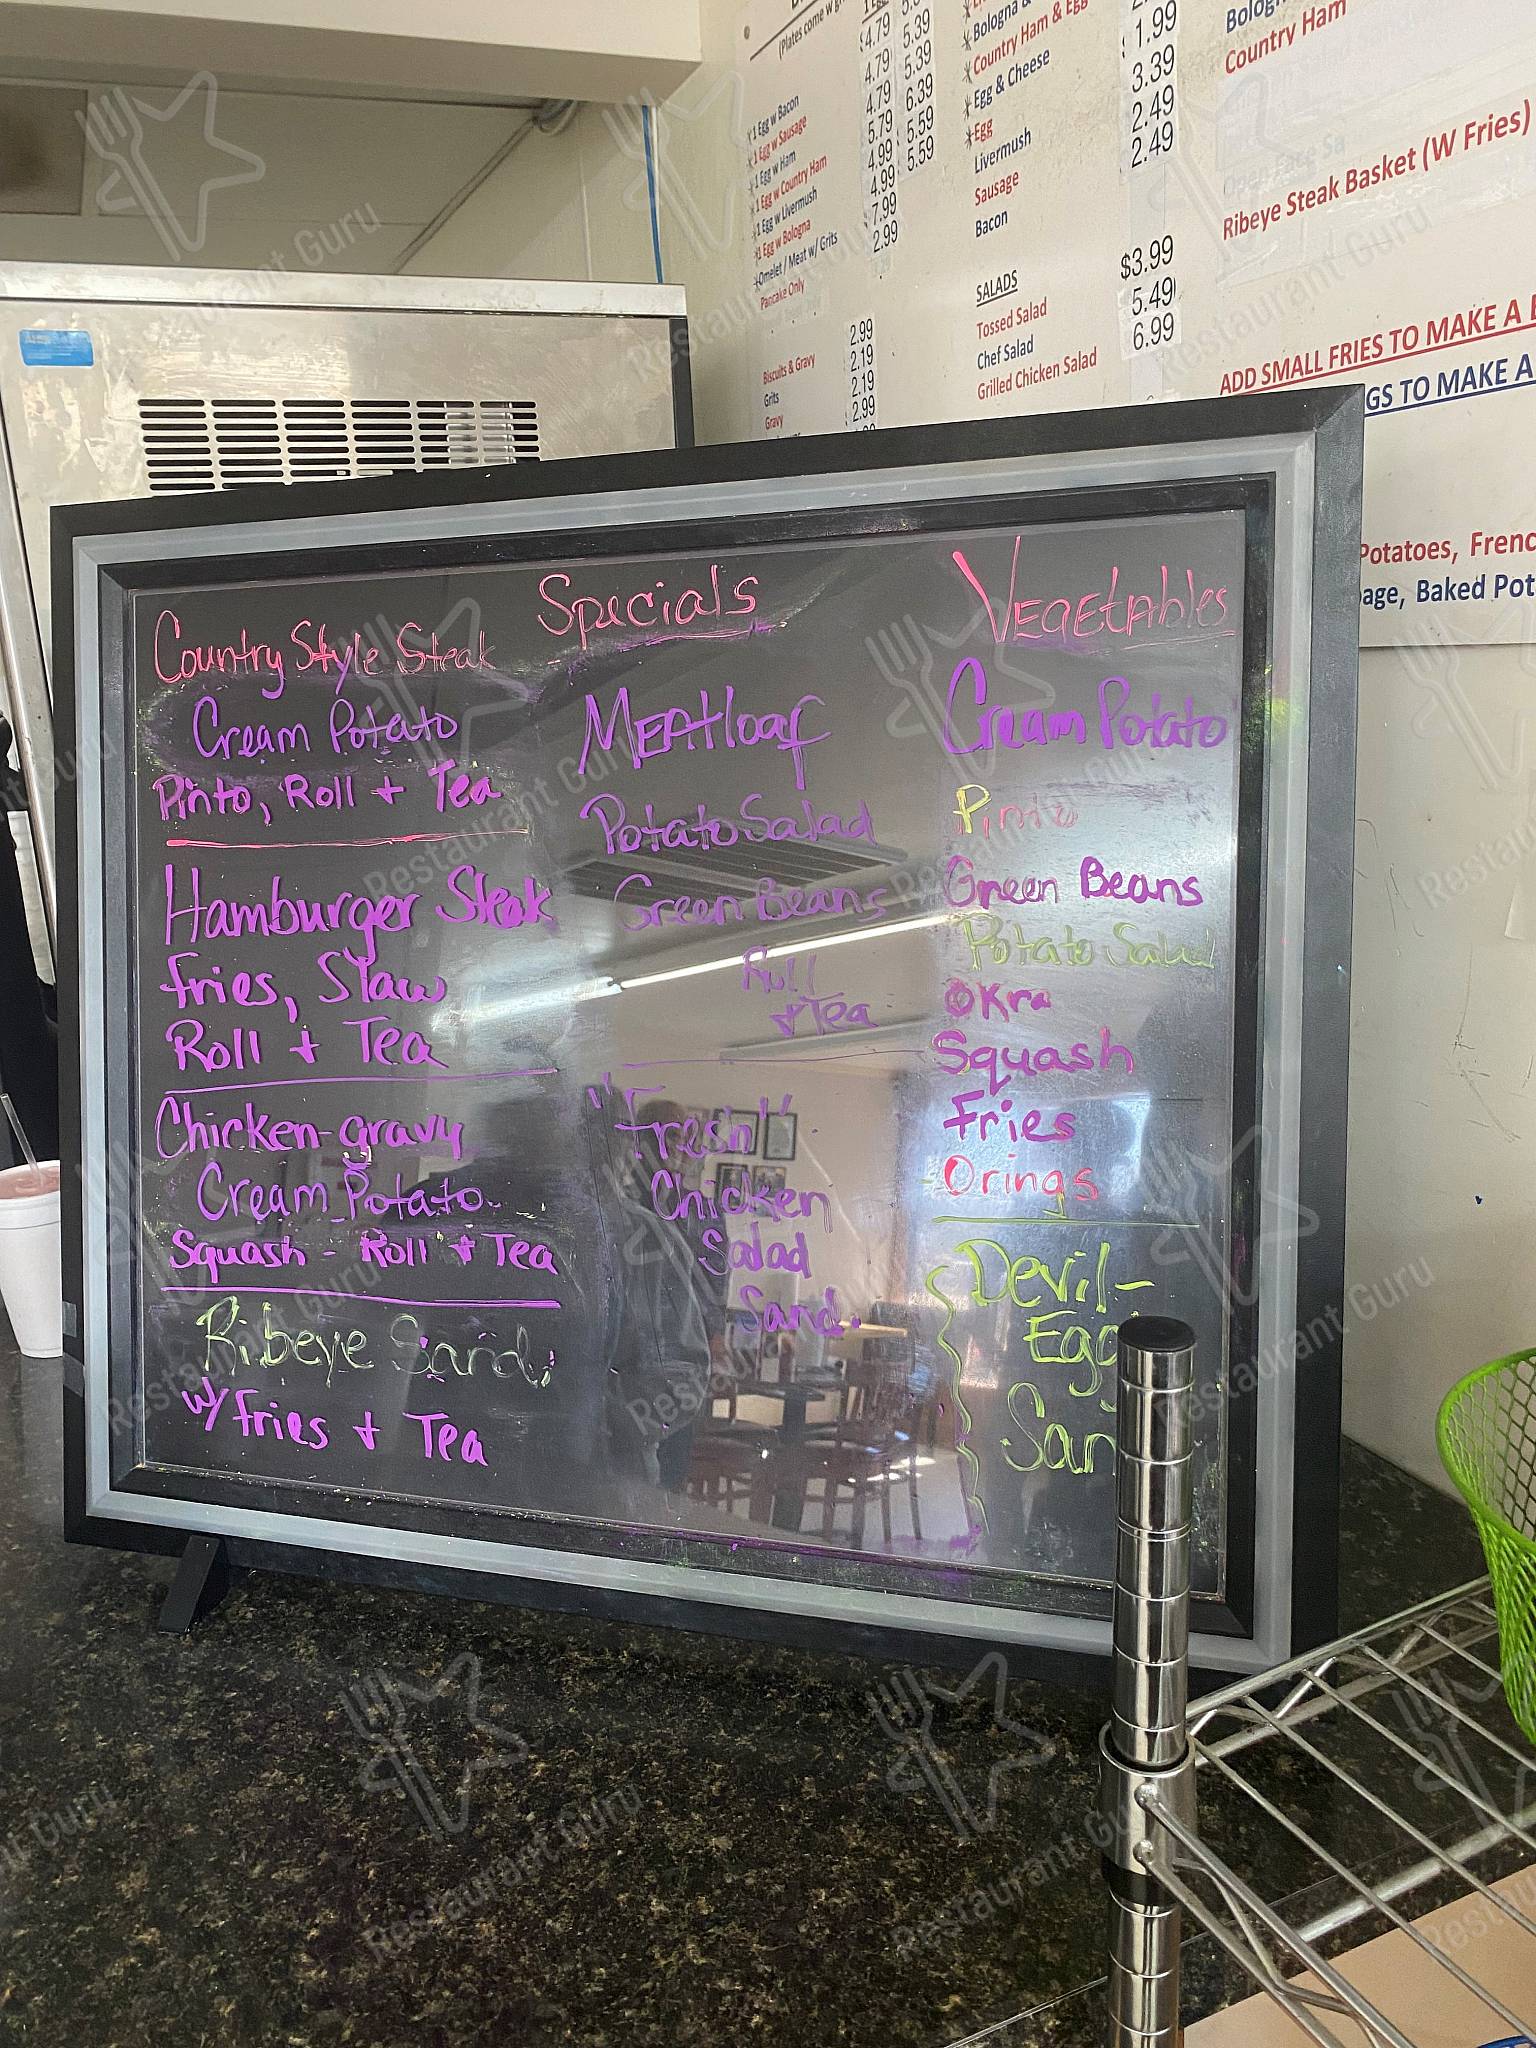 Specials
Country Style Steak
Cream Potato
Pinto, Roll + Tea
Hamburger Steak
Fries, Slaw
Roll + Tea
Chicken-gravy
Cream Potato
Squash - Roll + Tea
Ribeye Sand.
w/ Fries + Tea
Meatloaf
Potato Salad
Green Beans
Roll
+ Tea
"Fresh"
Chicken
Salad
Sand.
Vegetables
Cream Potato
Pinto
Green Beans
Potato Salad
Okra
Squash
Fries
Orings
Devil-
Egg
San
(Plates come w
1 Egg w Bacon
1 Egg w Sausage
1 Egg w Ham
1 Egg w Country Ham
1 Egg w Livermush
1 Egg w Bologna
Omelet / Meat w/ Grits
Pancake Only
4.79 5.39
4.79 5.39
4.79 6.39
5.79 5.59
4.99 5.59
4.99
7.99
2.99
Biscuits & Gravy
Grits
Gravy
2.99
2.19
2.19
2.99
Bologna &
Country Ham & Egg
Egg & Cheese
Egg
Livermush
Sausage
Bacon
1.99
3.39
2.49
2.49
SALADS
Tossed Salad $3.99
Chef Salad 5.49
Grilled Chicken Salad 6.99
Country Ham
Ribeye Steak Basket (W Fries)
ADD SMALL FRIES TO MAKE A
GS TO MAKE A
Potatoes, Frenc
age, Baked Pot
Restaurant Guru